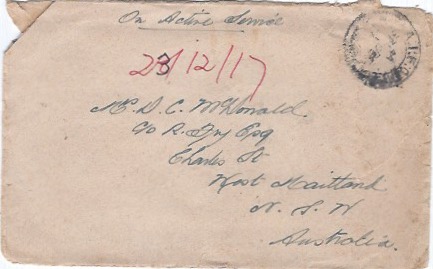 On Active Service
23/12/17
Mr. D. C. McDonald.
C/o R. Fry Esq
Charles St
West Maitland
N. S. W
Australia.